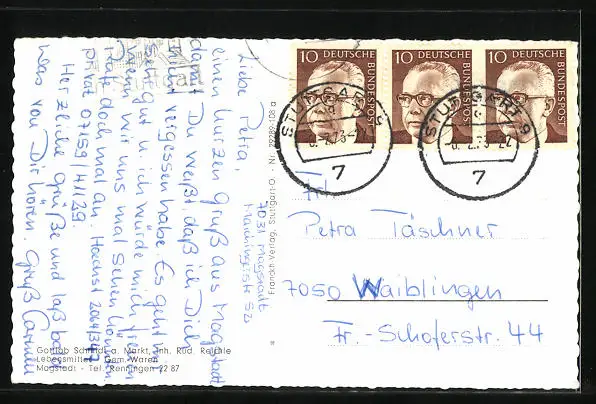 Liebe Petra,
einen kurzen Gruß aus Magstadt
damit Du weißt, daß ich Dich
nicht vergessen habe. Es geht mir
sehr gut u. ich würde mich freuen
wenn wir uns mal sehen könnten.
Ruf doch mal an.
privat 07159/41129.
Herzliche Grüße und laß bald
was von Dir hören. Gruß
7031 Magstadt
Franckh-Verlag, Stuttgart-O. - Nr. 29289-108 a
10 DEUTSCHE BUNDESPOST
10 DEUTSCHE BUNDESPOST
10 DEUTSCHE BUNDESPOST
STUTTGART 9
7
STUTTGART 9
-22
7
Frl.
Petra Täschner
7050 Waiblingen
Fr.-Schoferstr. 44
Gottlob Schmidt a. Markt, Inh. Rud. Reichle
Lebensmittel - Gem. Waren
Magstadt - Tel. Renningen 22 87